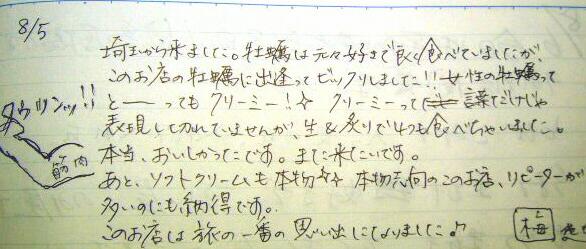 8/5
埼玉から来ました。牡蠣は元々好きで良く食べていましたが、
このお店の牡蠣に出逢ってビックリしました!!女性の牡蠣って
と――ってもクリーミー!☆ クリーミーって言葉だけじゃ
表現し切れていませんが、生&炙りで4つも食べちゃいました。
本当、おいしかったです。また来たいです。
あと、ソフトクリームも本物☆☆ 本物志向のこのお店、リピーターが
多いのにも納得です。
このお店は旅の一番の思い出になりました♪
タウリンッ!!
筋肉
梅